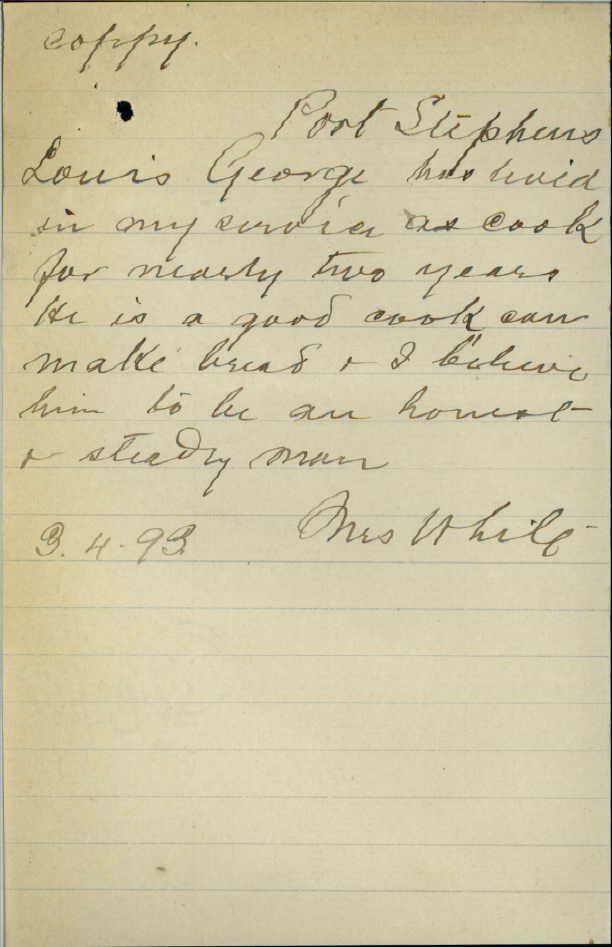 coppy.
Port Stephens
Louis George has livid
in my service as cook
for nearly two years
He is a good cook can
make bread & I believe
him to be an honest
& steady man
Mrs White
3.4.93.